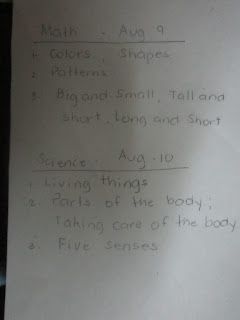 Math . Aug 9
1. Colors, Shapes
2. Patterns
3. Big and Small, Tall and
Short, Long and Short
Science . Aug . 10
1. Living things
2. Parts of the body;
Taking care of the body
3. Five senses